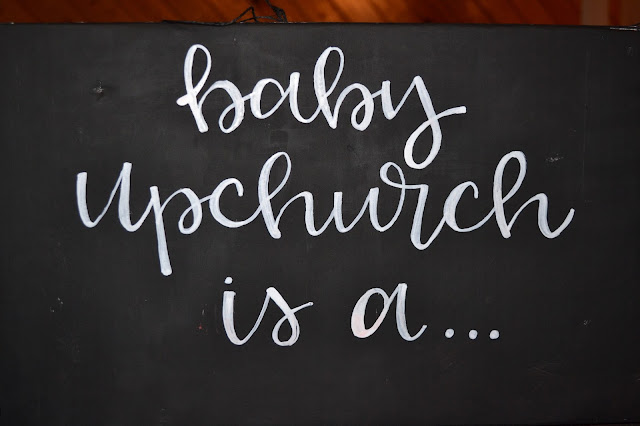 baby
upchurch
is a...